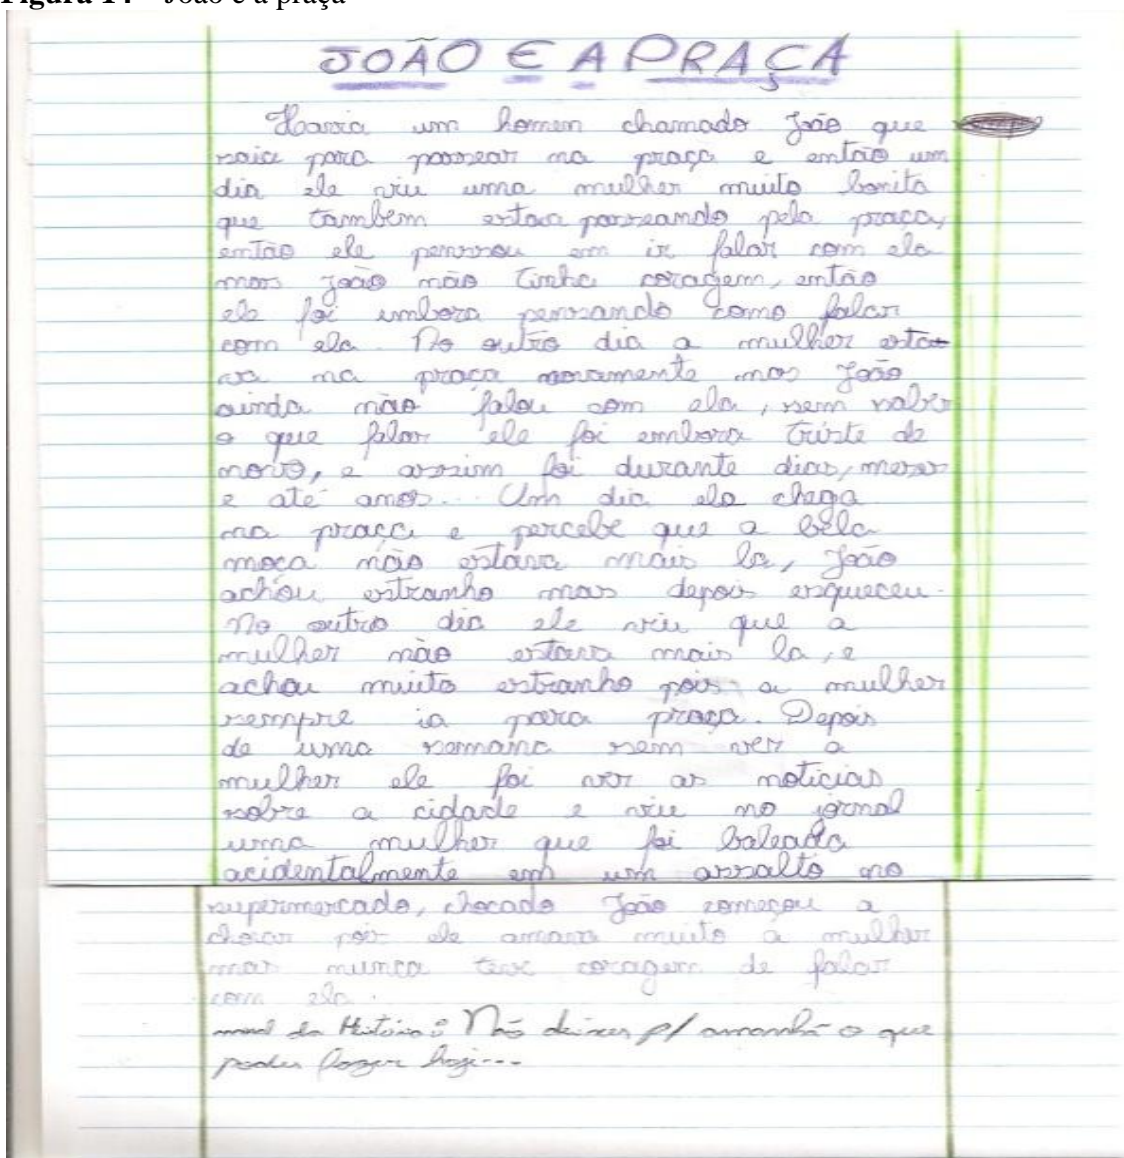 Figura 14 – João e a praça
JOÃO E A PRAÇA
Havia um homem chamado João que
saia para passear na praça e então um
dia ele viu uma mulher muito bonita
que também estava passeando pela praça,
então ele penssou em ir falar com ela
mas João não tinha coragem, então
ele foi embora pensando como falar
com ela. No outro dia a mulher esta-
va na praça novamente mas João
ainda não falou com ela, sem saber
o que falar ele foi embora triste de
novo, e assim foi durante dias, meses
e até anos... Um dia ele chega
na praça e percebe que a bela
moça não estava mais la, João
achou estranho mas depois esqueceu.
No outro dia ele viu que a
mulher não estava mais la, e
achou muito estranho pois a mulher
sempre ia para praça. Depois
de uma semana sem ver a
mulher ele foi ver as noticias
sobre a cidade e viu no jornal
uma mulher que foi baleada
acidentalmente em um assalto no
supermercado, chocado João começou a
chorar pois ele amava muito a mulher
mas nunca teve coragem de falar
com ela.
moral da História: Não deixes p/ amanhã o que
podes fazer hoje...